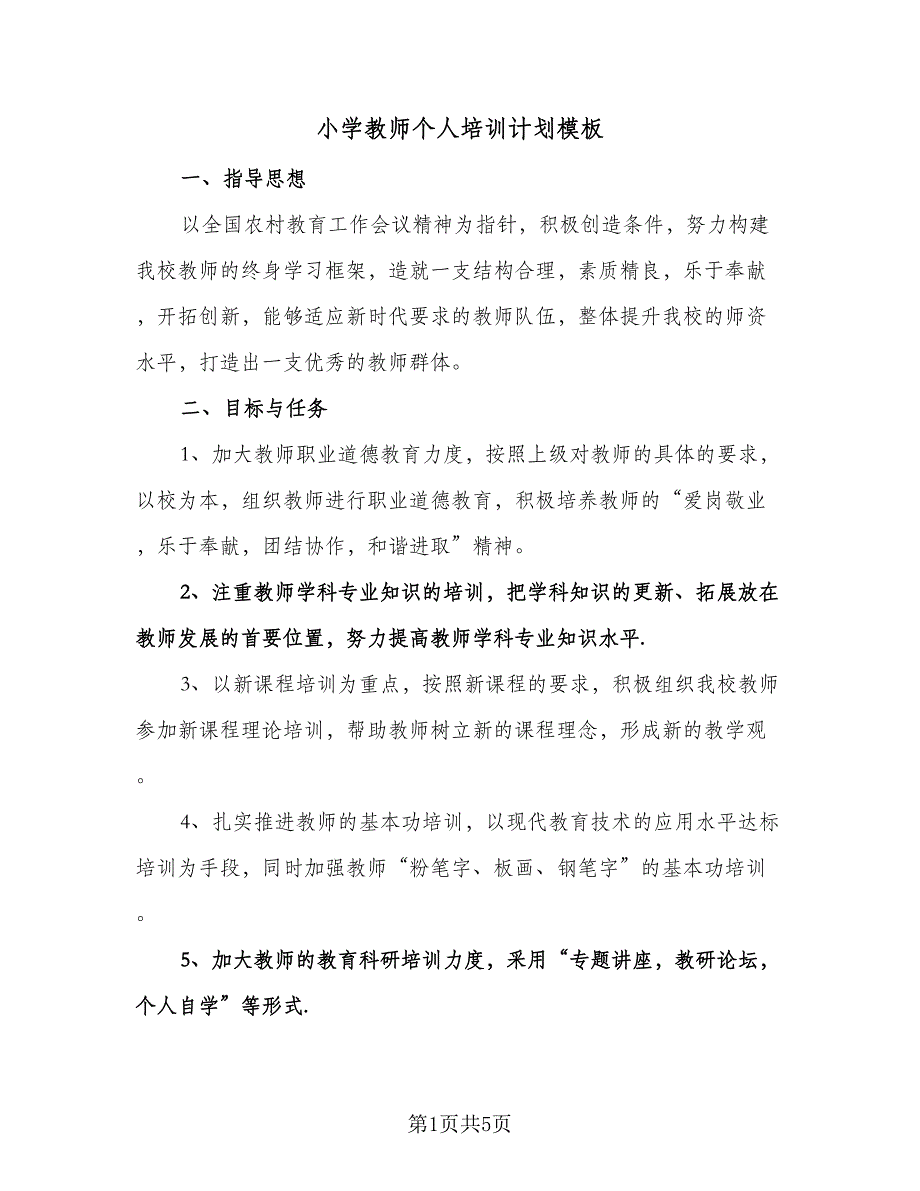 小学教师个人培训计划模板
一、指导思想
以全国农村教育工作会议精神为指针，积极创造条件，努力构建
我校教师的终身学习框架，造就一支结构合理，素质精良，乐于奉献
，开拓创新，能够适应新时代要求的教师队伍，整体提升我校的师资
水平，打造出一支优秀的教师群体。
二、目标与任务
1、加大教师职业道德教育力度，按照上级对教师的具体的要求，
以校为本，组织教师进行职业道德教育，积极培养教师的“爱岗敬业
，乐于奉献，团结协作，和谐进取”精神。
2、注重教师学科专业知识的培训，把学科知识的更新、拓展放在
教师发展的首要位置，努力提高教师学科专业知识水平.
3、以新课程培训为重点，按照新课程的要求，积极组织我校教师
参加新课程理论培训，帮助教师树立新的课程理念，形成新的教学观
。
4、扎实推进教师的基本功培训，以现代教育技术的应用水平达标
培训为手段，同时加强教师“粉笔字、板画、钢笔字”的基本功培训
。
5、加大教师的教育科研培训力度，采用“专题讲座，教研论坛，
个人自学”等形式.
第1页共5页